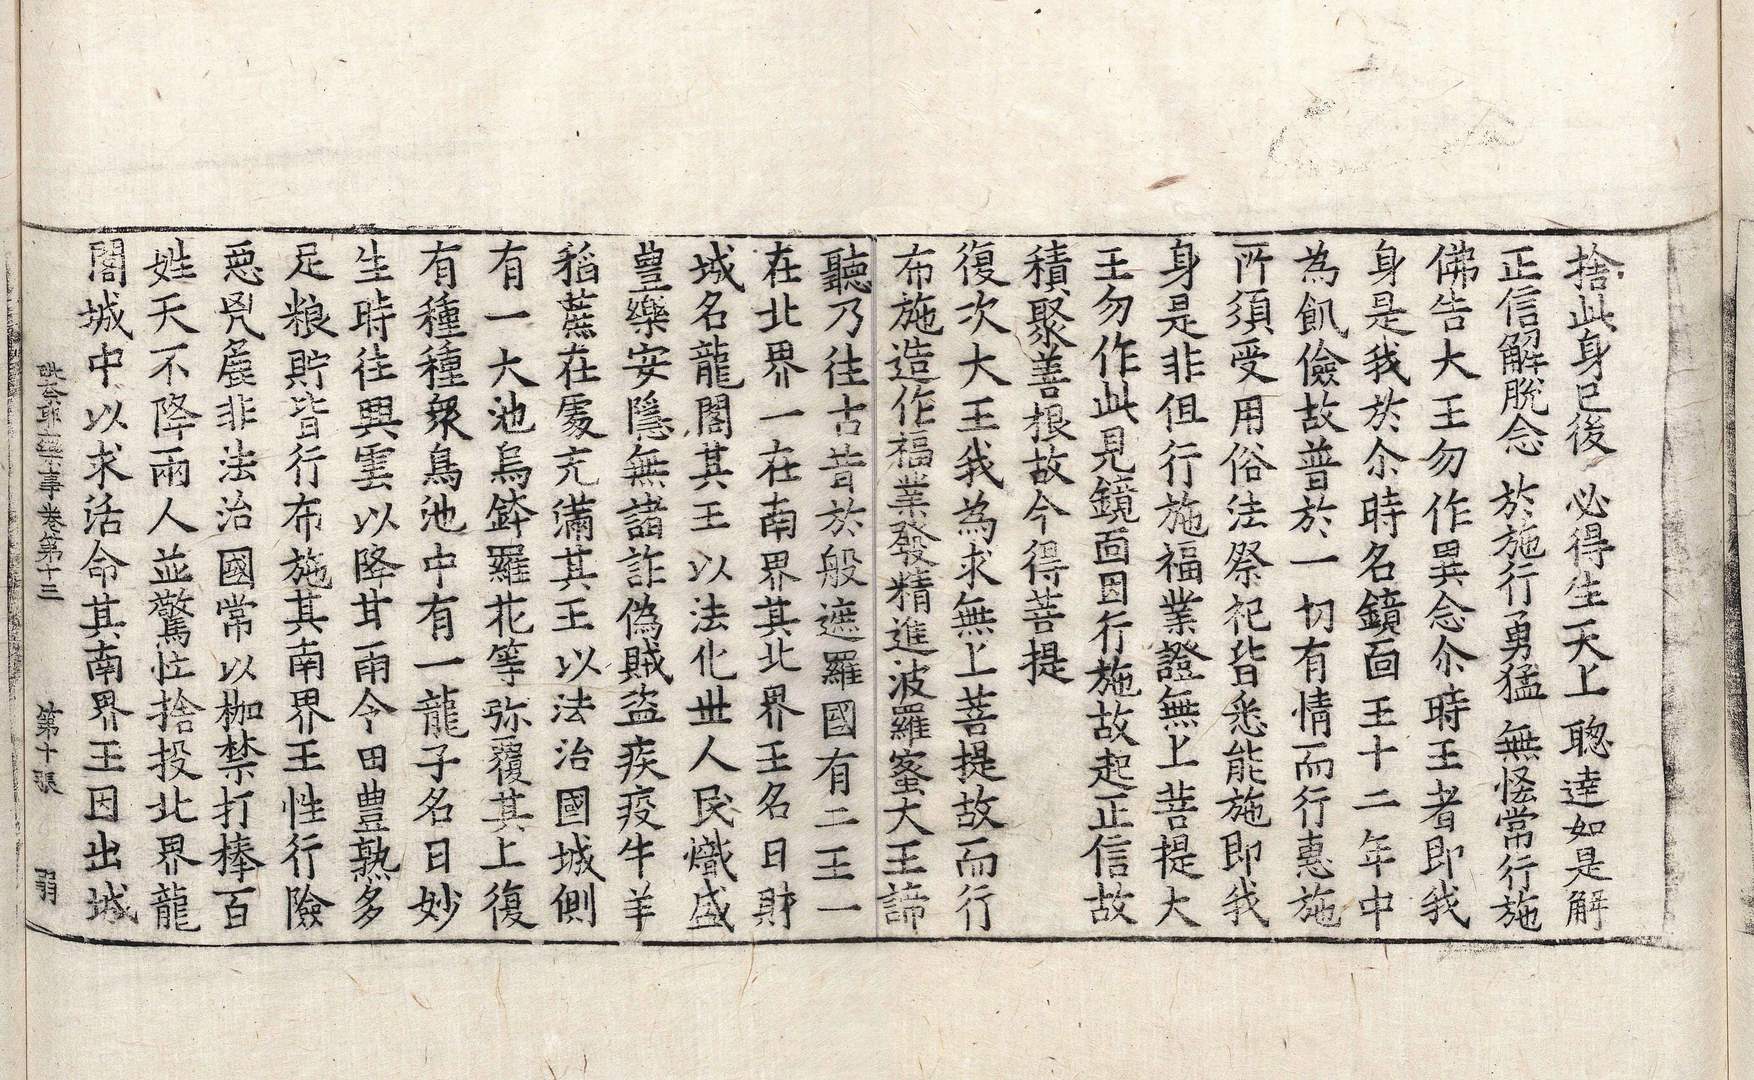 捨此身已後必得生天上聰達如是解
正信解脫念於施行勇猛無恡常行施
佛告大王勿作異念尒時王者即我
身是我於尒時名鏡面王十二年中
為飢儉故普於一切有情而行惠施
所須受用俗法祭祀皆悉能施即我
身是非但行施福業證無上菩提大
王勿作此見鏡面因行施故起正信故
積聚善根故今得菩提
復次大王我為求無上菩提故而行
布施造作福業發精進波羅蜜大王諦
聽乃往古昔於般遮羅國有二王一
在北界一在南界其北界王名曰財
城名龍閣其王以法化世人民熾盛
豊樂安隱無諸詐偽賊盜疾疫牛羊
稻蔗在處充滿其王以法治國城側
有一大池烏鉢羅花等弥覆其上復
有種種衆鳥池中有一龍子名曰妙
生時往興雲以降甘雨令田豊熟多
足粮貯皆行布施其南界王性行險
惡㒵麁非法治國常以枷禁打棒百
姓天不降雨人並驚怯捨投北界龍
閣城中以求活命其南界王因出城
毗奈耶藥事卷第十三 第十張 翦